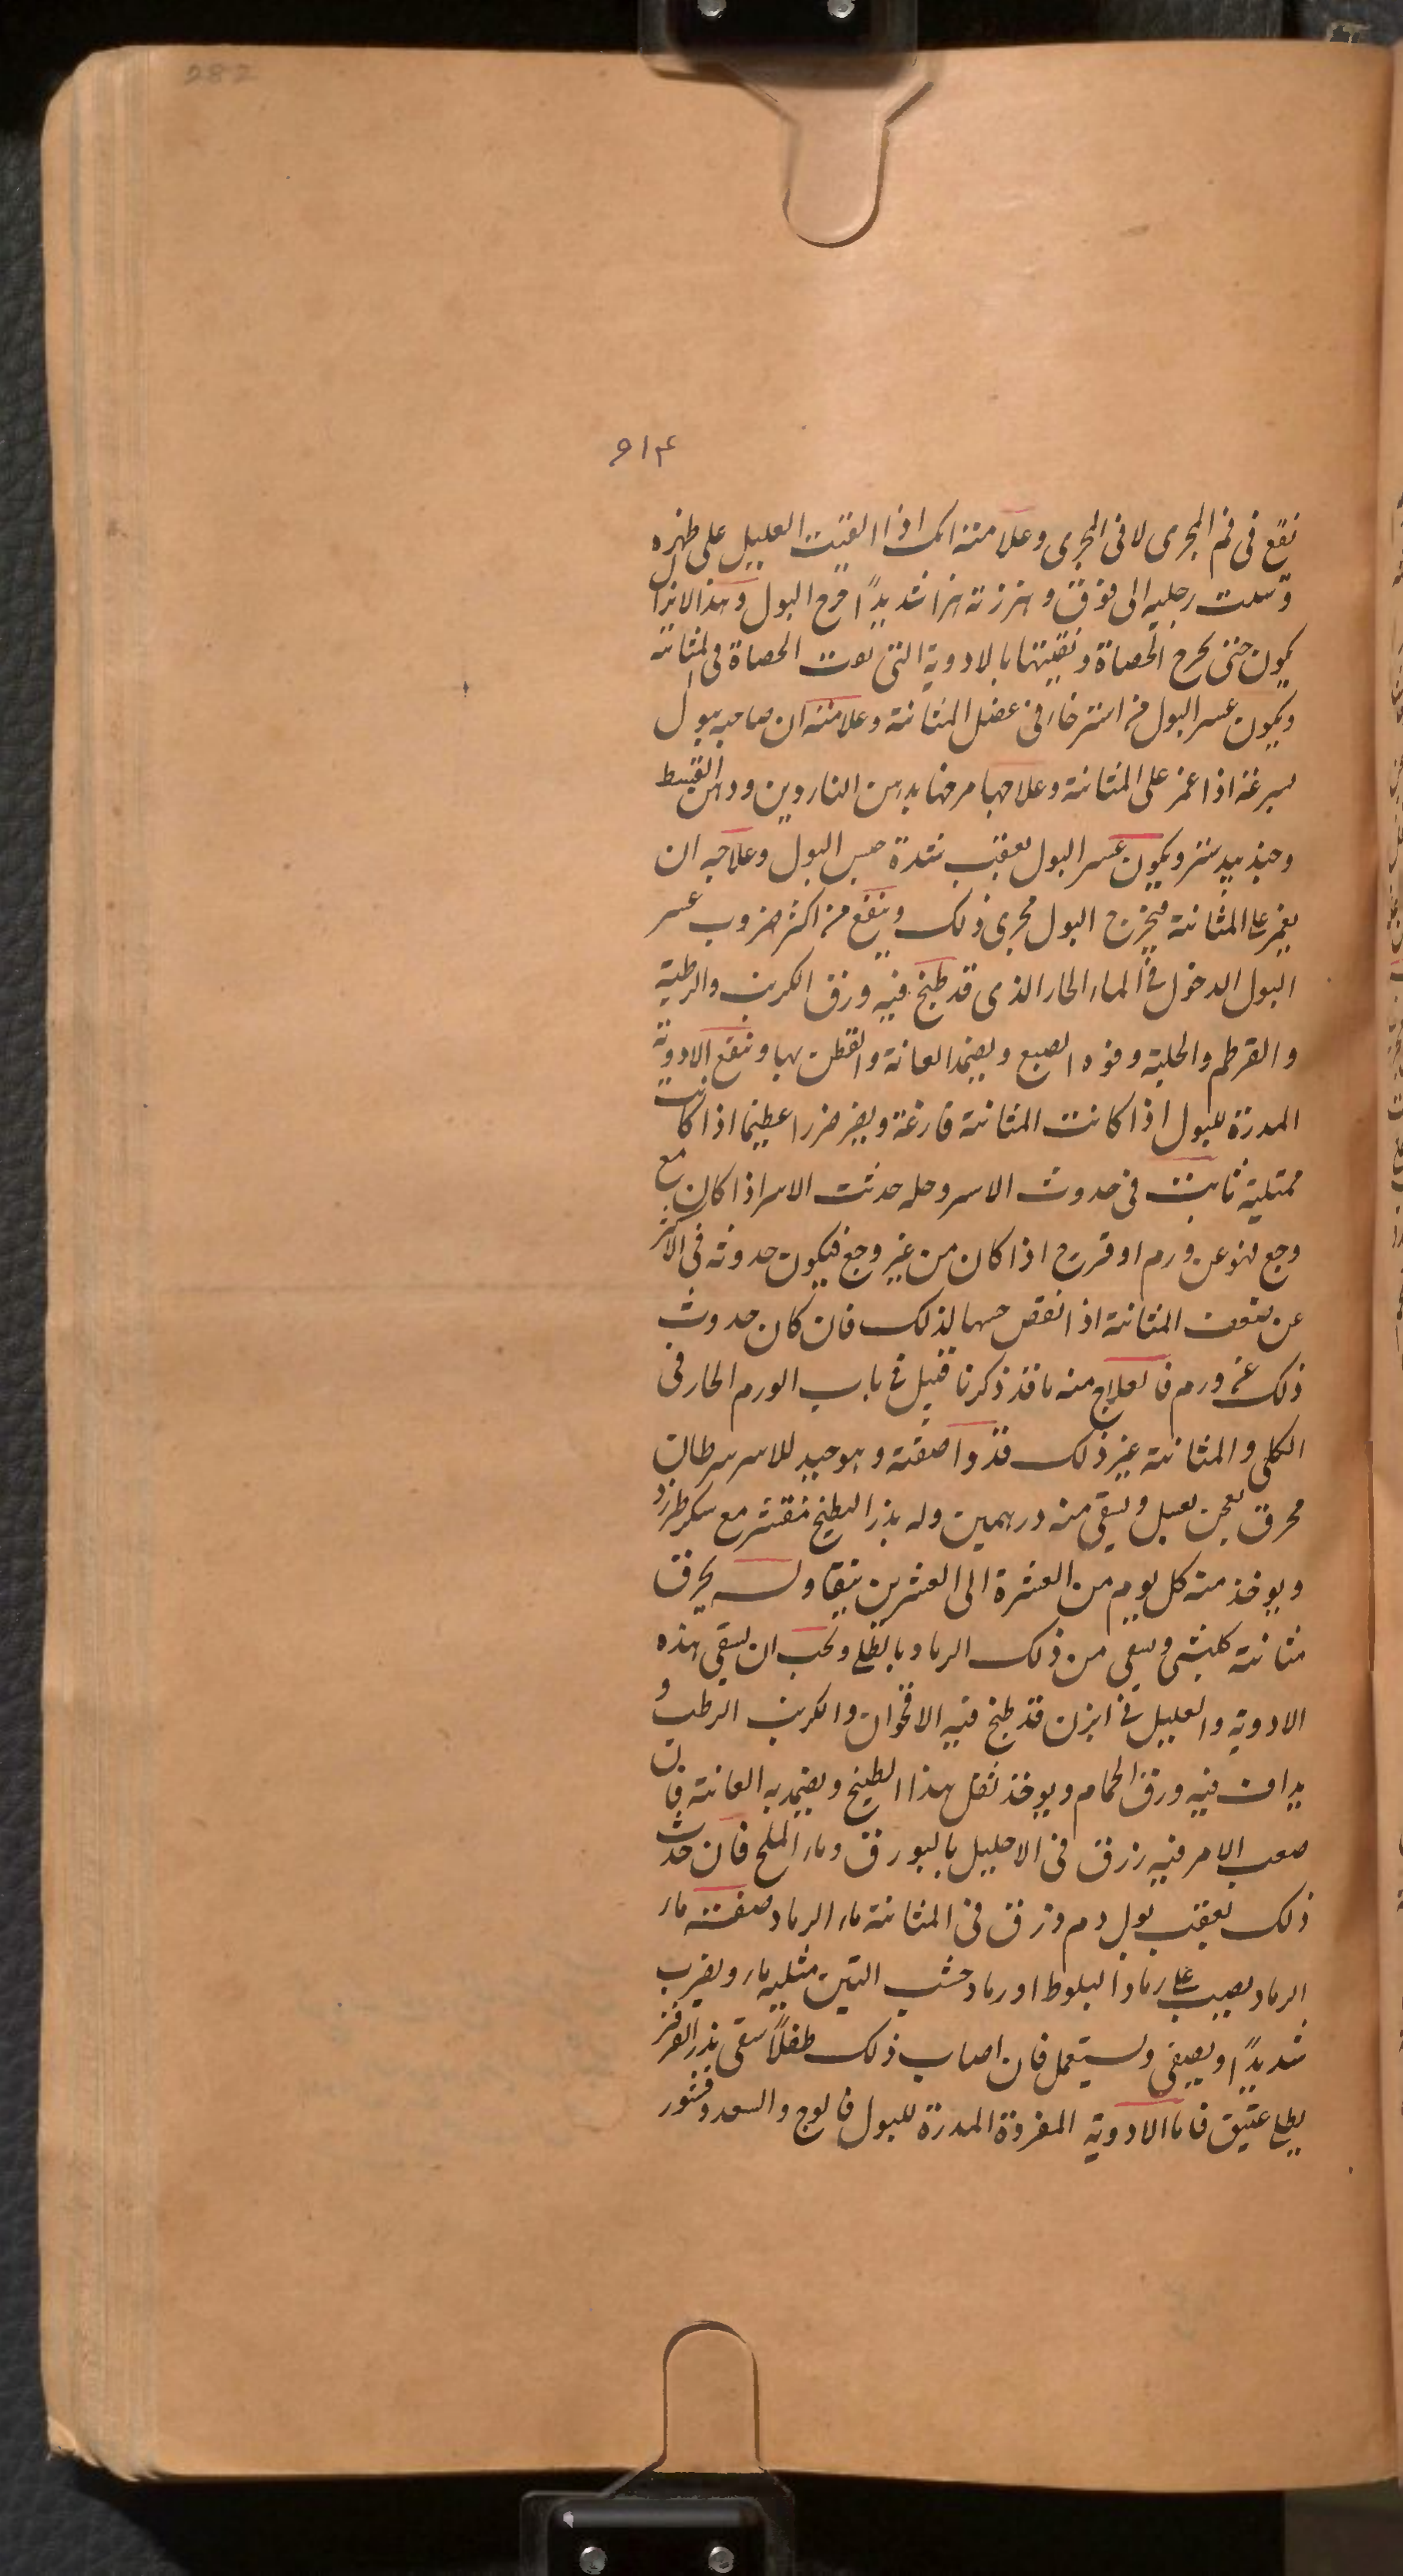 282
۹۱۴
نقع فى فم المجرى لا فى المجرى وعلامته انک اذا القيت العليل على ظهره
وسلت رجليه الى فوق وهززته هزا شديدًا خرج البول وهذا لا يزال
يكون حتى يخرج الحصاة ونقيتها بالادوية التى تفت الحصاة فى المثانة
ويكون عسر البول من استرخاء فى عضل المثانة وعلامته ان صاحبه يبول
بسرعة اذا غمز على المثانة وعلاجها مرخها بدهن الناردين ودهن القسط
وجند بيدستر ويكون عسر البول بعقب شدة حبس البول وعلاجه ان
يغمز على المثانة فيخرج البول مجرى ذلک وينفع من اكثر ضروب عسر
البول الدخول فى الماء الحار الذى قد طبخ فيه ورق الكرنب والرطبة
والقرطم والحلبة وفوه الصبغ ويضمد العانة والقطن بها وتنفع الادوية
المدرة للبول اذا كانت المثانة فارغة ويضر ضررا عظيما اذا كانت
ممتلية ثابت فى حدوث الاسر وحله حدثت الاسر اذا كان مع
وجع فهو عن ورم او قرح اذا كان من غير وجع فيكون حدوثه فى الاكثر
عن ضعف المثانة اذا نقص حسها لذلک فان كان حدوث
ذلک عن ورم فالعلاج منه ما قد ذكرنا قبل فى باب الورم الحار فى
الكلى والمثانة غير ذلک فدوا صفته وهو جيد للاسر سرطان
محرق يعجن بعسل ويسقى منه درهمين وله بذر البطيخ مقشر مع سكر طبرزد
ويوخذ منه كل يوم من العشرة الى العشرين نيقا وله يحرق
مثانة كبش ويسقى من ذلک الرماد بالطلع ويجب ان يسقى هذه
الادوية والعليل فى ابزن قد طبخ فيه الاقحوان والكرنب الرطب و
يداف فيه ورق الحمام ويوخذ ثفل هذا الطبيخ ويضمد به العانة فان
صعب الامر فيه زرق فى الاحليل بالبورق وماء الملح فان حدث
ذلک بعقب بول دم وزرق فى المثانة ماء الرماد صفته ماء
الرماد يصب على رماد البلوط او رماد خشب التين مثليه ماء ويضرب
شديدًا ويصفى ويستعمل فان اصاب ذلک طفلًا سقى بذر القرفز
بطلع عتيق فاما الادوية المفردة المدرة للبول فالوج والسعد وقشور